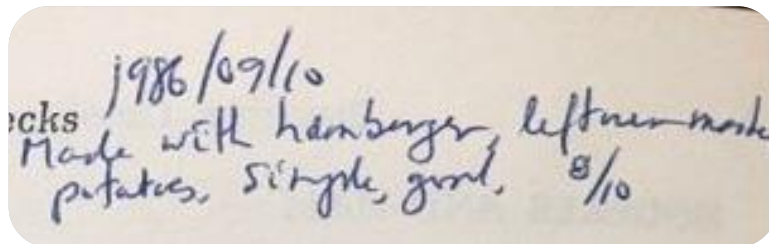 1986/09/10
ecks
Made with hamburger, leftover mashe
potatoes, simple, good. 8/10